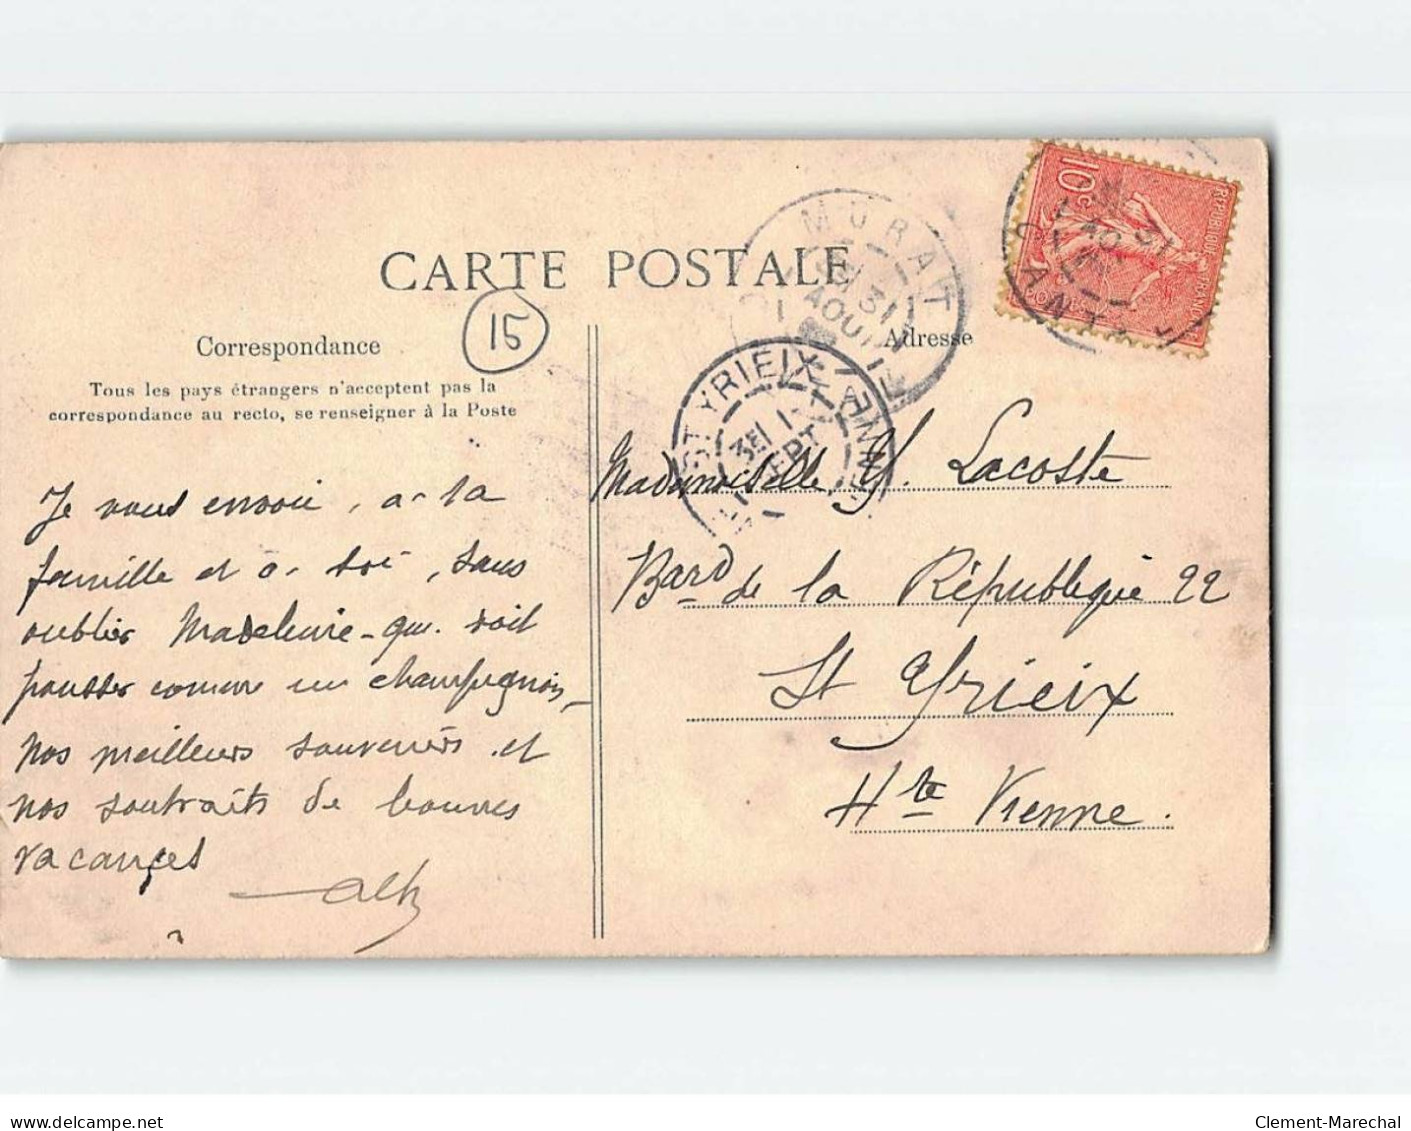 CARTE POSTALE
15
Correspondance
Tous les pays étrangers n'acceptent pas la
correspondance au recto, se renseigner à la Poste
Adresse
MURAT
31
AOUT
CANTAL
ST YRIEIX
VIENNE
SEPT
10c
REPUBLIQUE FRANCAISE
Je vous envoie, à ta
famille et à toi, sans
oublier Madeleine - qui doit
pousser comme un champignon,
nos meilleurs souvenirs et
nos souhaits de bonnes
vacances
Mademoiselle Y. Lacoste
Bard de la République 22
St Yrieix
Hte Vienne.
Clement-Marechal